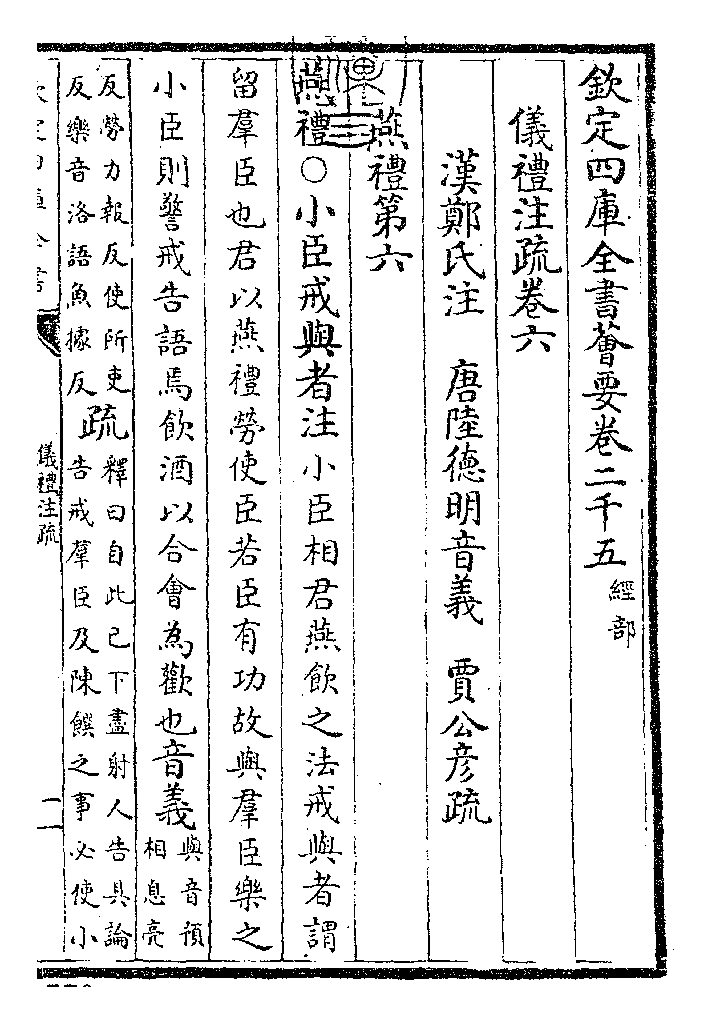 欽定四庫全書薈要卷二千五 經部
儀禮注疏卷六
漢鄭氏注 唐陸德明音義 賈公彦疏
燕禮第六
燕禮○小臣戒與者注小臣相君燕飲之法戒與者謂
留羣臣也君以燕禮勞使臣若臣有功故與羣臣樂之
小臣則警戒告語焉飲酒以合會為歡也音義與音預
相息亮
反勞力報反使所吏
反樂音洛語魚據反疏釋曰自此已下盡射人告具論
告戒羣臣及陳饌之事必使小
儀禮注疏
一